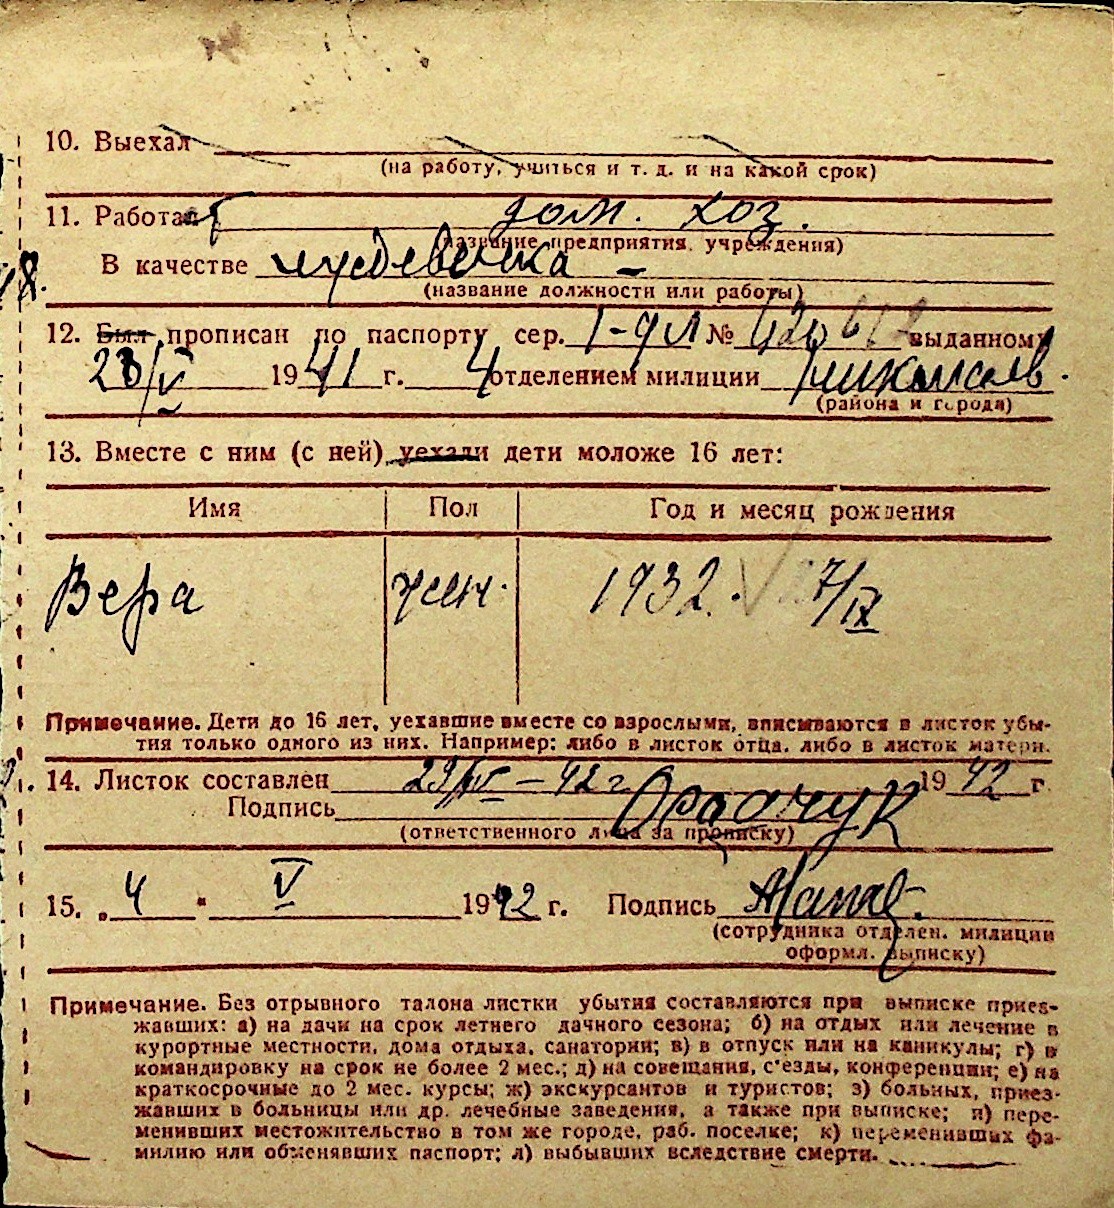 10. Выехал
(на работу, учиться и т. д. и на какой срок)
11. Работает дом. хоз.
(название предприятия, учреждения)
В качестве иждевенка –
(название должности или работы)
12. Был прописан по паспорту сер. № выданному
23/V 1941 г. 4 отделением милиции
(района и города)
13. Вместе с ним (с ней) уехали дети моложе 16 лет:
Имя Пол Год и месяц рождения
Вера жен. 1932. 7/IX
Примечание. Дети до 16 лет, уехавшие вместе со взрослыми, вписываются в листок убы-
тия только одного из них. Например: либо в листок отца, либо в листок матери.
14. Листок составлен 29/IV – 42 г. 1942 г.
Подпись
(ответственного лица за прописку)
15. „4" V 1942 г. Подпись
(сотрудника отделен. милиции
оформл. выписку)
Примечание. Без отрывного талона листки убытия составляются при выписке приез-
жавших: а) на дачи на срок летнего дачного сезона; б) на отдых или лечение в
курортные местности, дома отдыха, санатории; в) в отпуск или на каникулы; г) в
командировку на срок не более 2 мес.; д) на совещания, с'езды, конференции; е) на
краткосрочные до 2 мес. курсы; ж) экскурсантов и туристов; з) больных, приез-
жавших в больницы или др. лечебные заведения, а также при выписке; и) пере-
менивших местожительство в том же городе, раб. поселке; к) переменивших фа-
милию или обменявших паспорт; л) выбывших вследствие смерти.